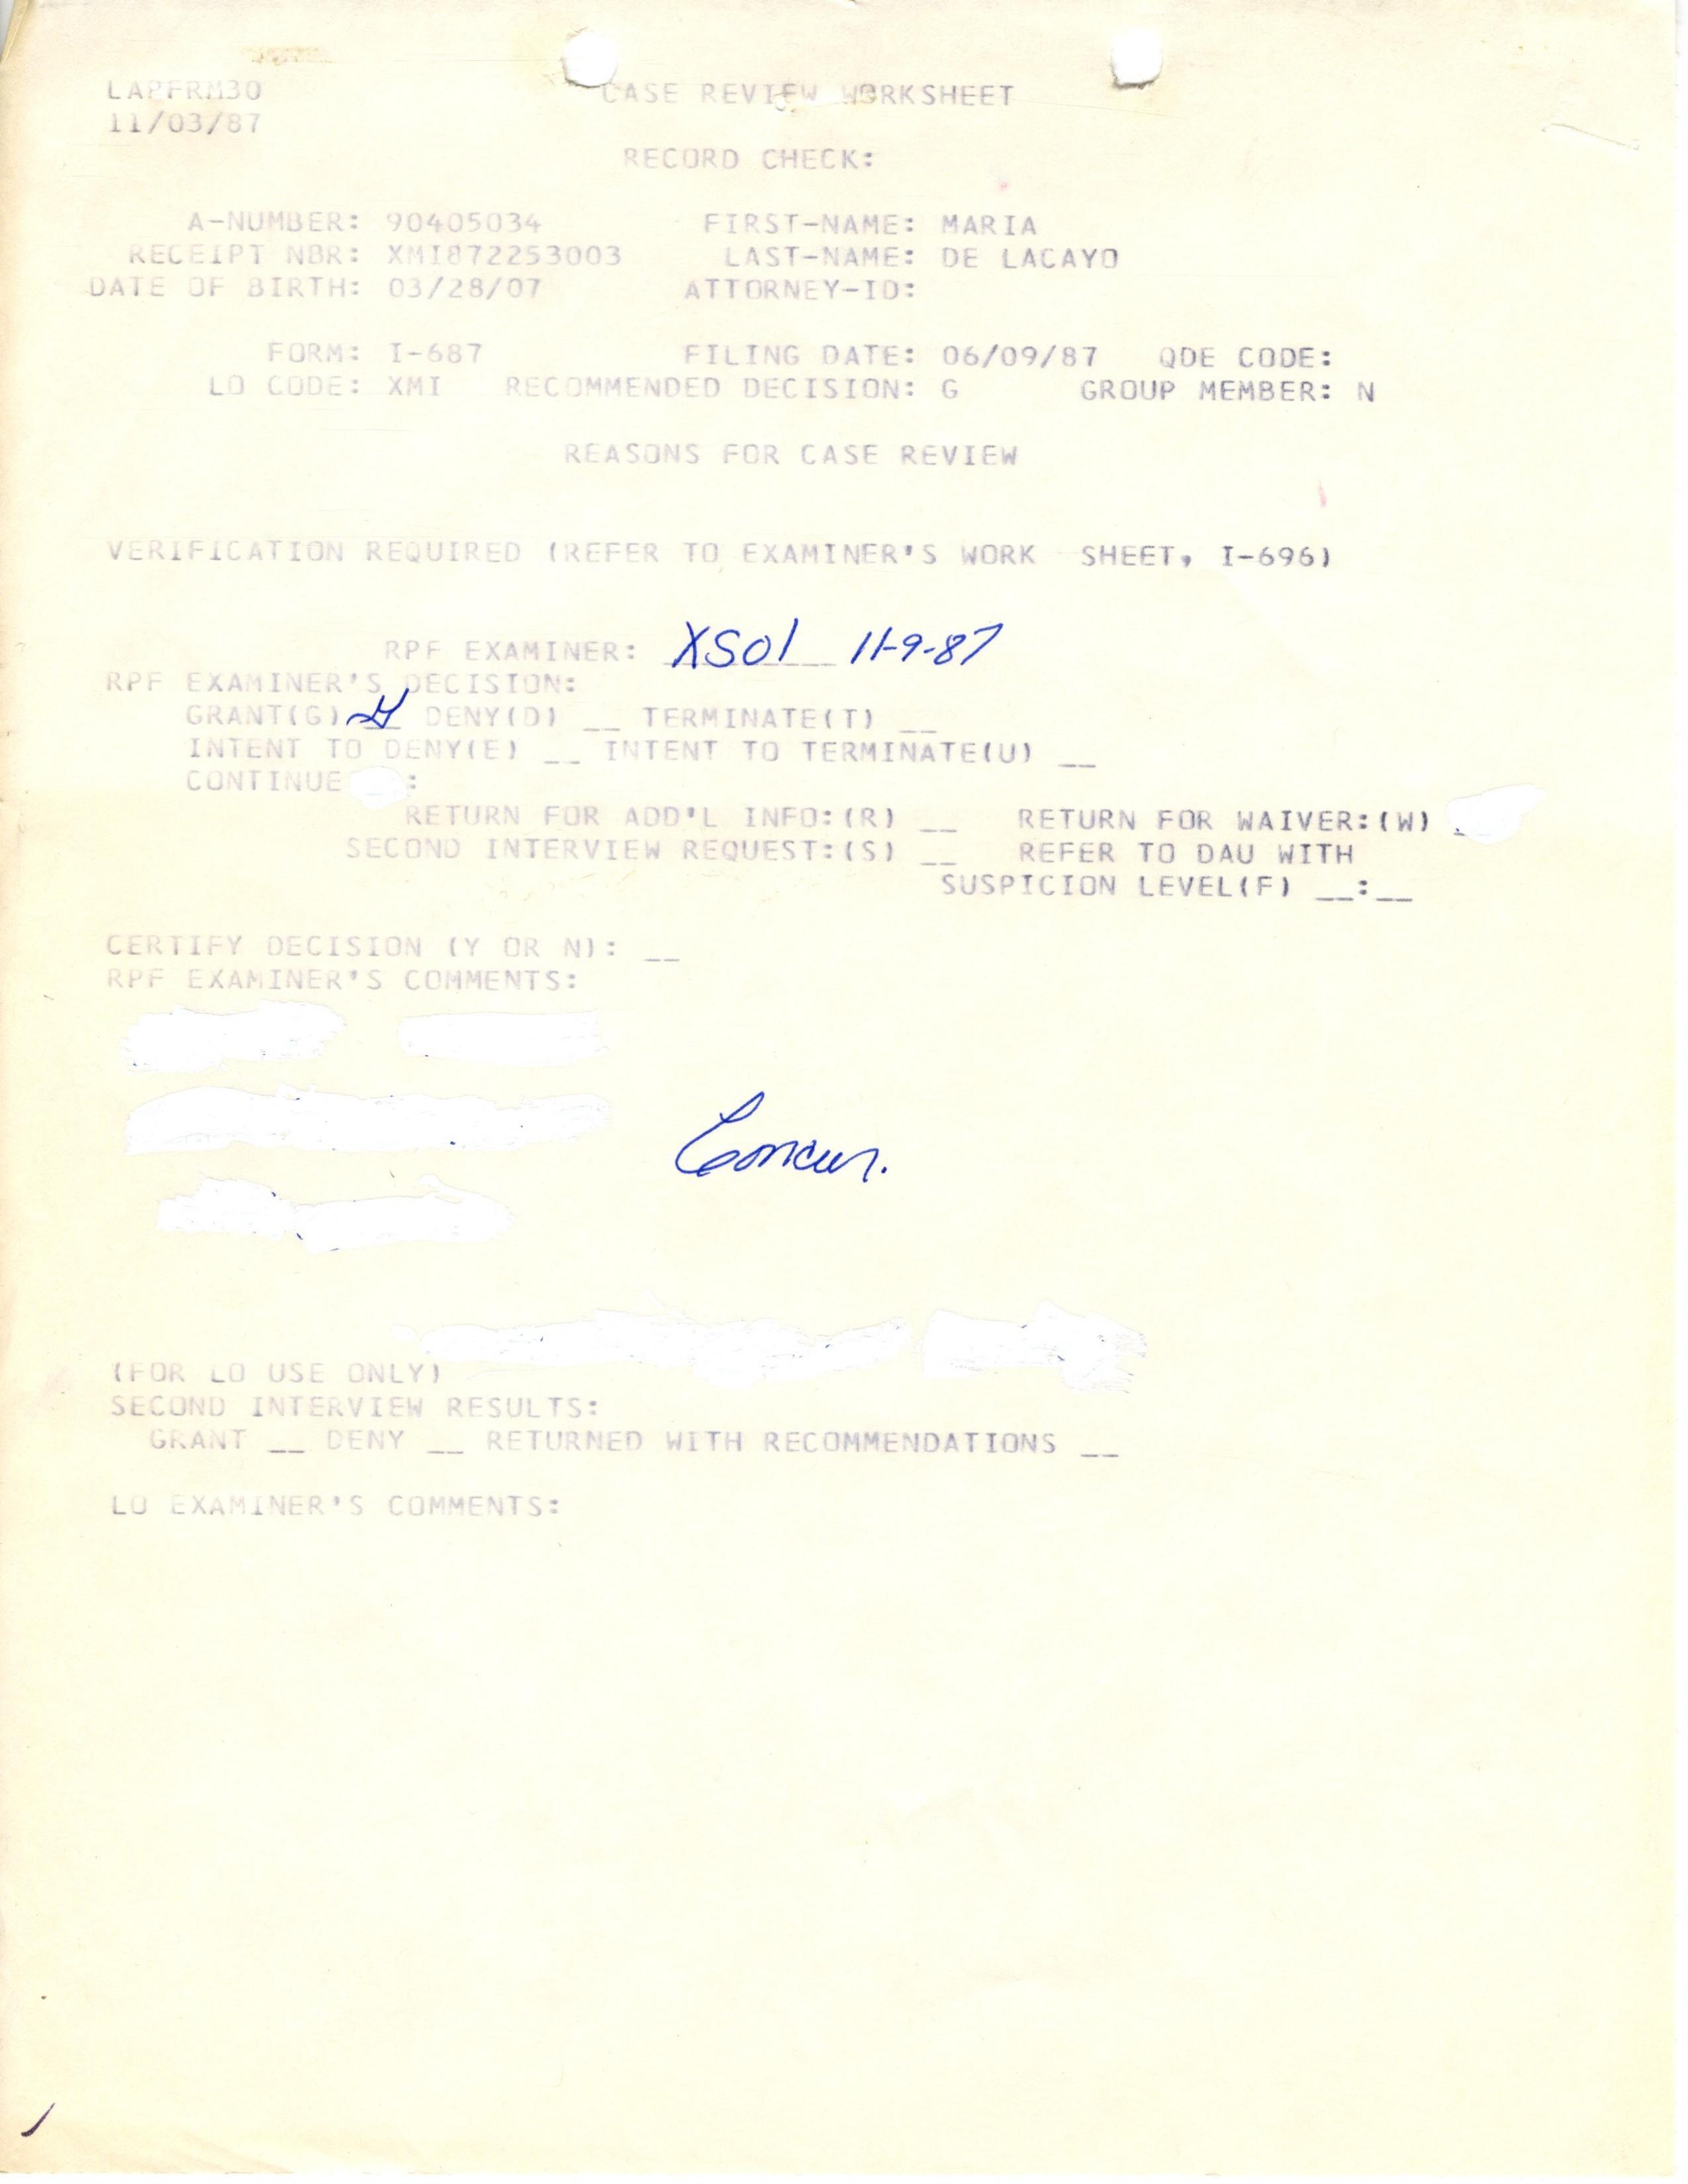 LAPFRM30 CASE REVIEW WORKSHEET
11/03/87
RECORD CHECK:
A-NUMBER: 90405034 FIRST-NAME: MARIA
RECEIPT NBR: XMI872253003 LAST-NAME: DE LACAYO
DATE OF BIRTH: 03/28/07 ATTORNEY-ID:
FORM: I-687 FILING DATE: 06/09/87 QDE CODE:
LO CODE: XMI RECOMMENDED DECISION: G GROUP MEMBER: N
REASONS FOR CASE REVIEW
VERIFICATION REQUIRED (REFER TO EXAMINER'S WORK SHEET, I-696)
RPF EXAMINER: XSO1 11-9-87
RPF EXAMINER'S DECISION:
GRANT(G) G DENY(D) __ TERMINATE(T) __
INTENT TO DENY(E) __ INTENT TO TERMINATE(U) __
CONTINUE :
RETURN FOR ADD'L INFO:(R) __ RETURN FOR WAIVER:(W)
SECOND INTERVIEW REQUEST:(S) __ REFER TO DAU WITH
SUSPICION LEVEL(F) __:__
CERTIFY DECISION (Y OR N): __
RPF EXAMINER'S COMMENTS:
Concur.
(FOR LO USE ONLY)
SECOND INTERVIEW RESULTS:
GRANT __ DENY __ RETURNED WITH RECOMMENDATIONS __
LO EXAMINER'S COMMENTS: